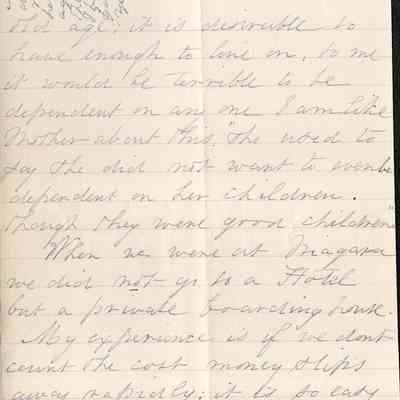 old age; it is desirable to
have enough to live on, to me
it would be terrible to be
dependent on any one I am like
Mother about this, "she used to
say she did not want to even be
dependent on her children.
though they were good children"
When we were at Niagara
we did not go to a Hotel
but a private boarding house.
My experience is if we dont
count the cost money slips
away rapidly; it is so easy